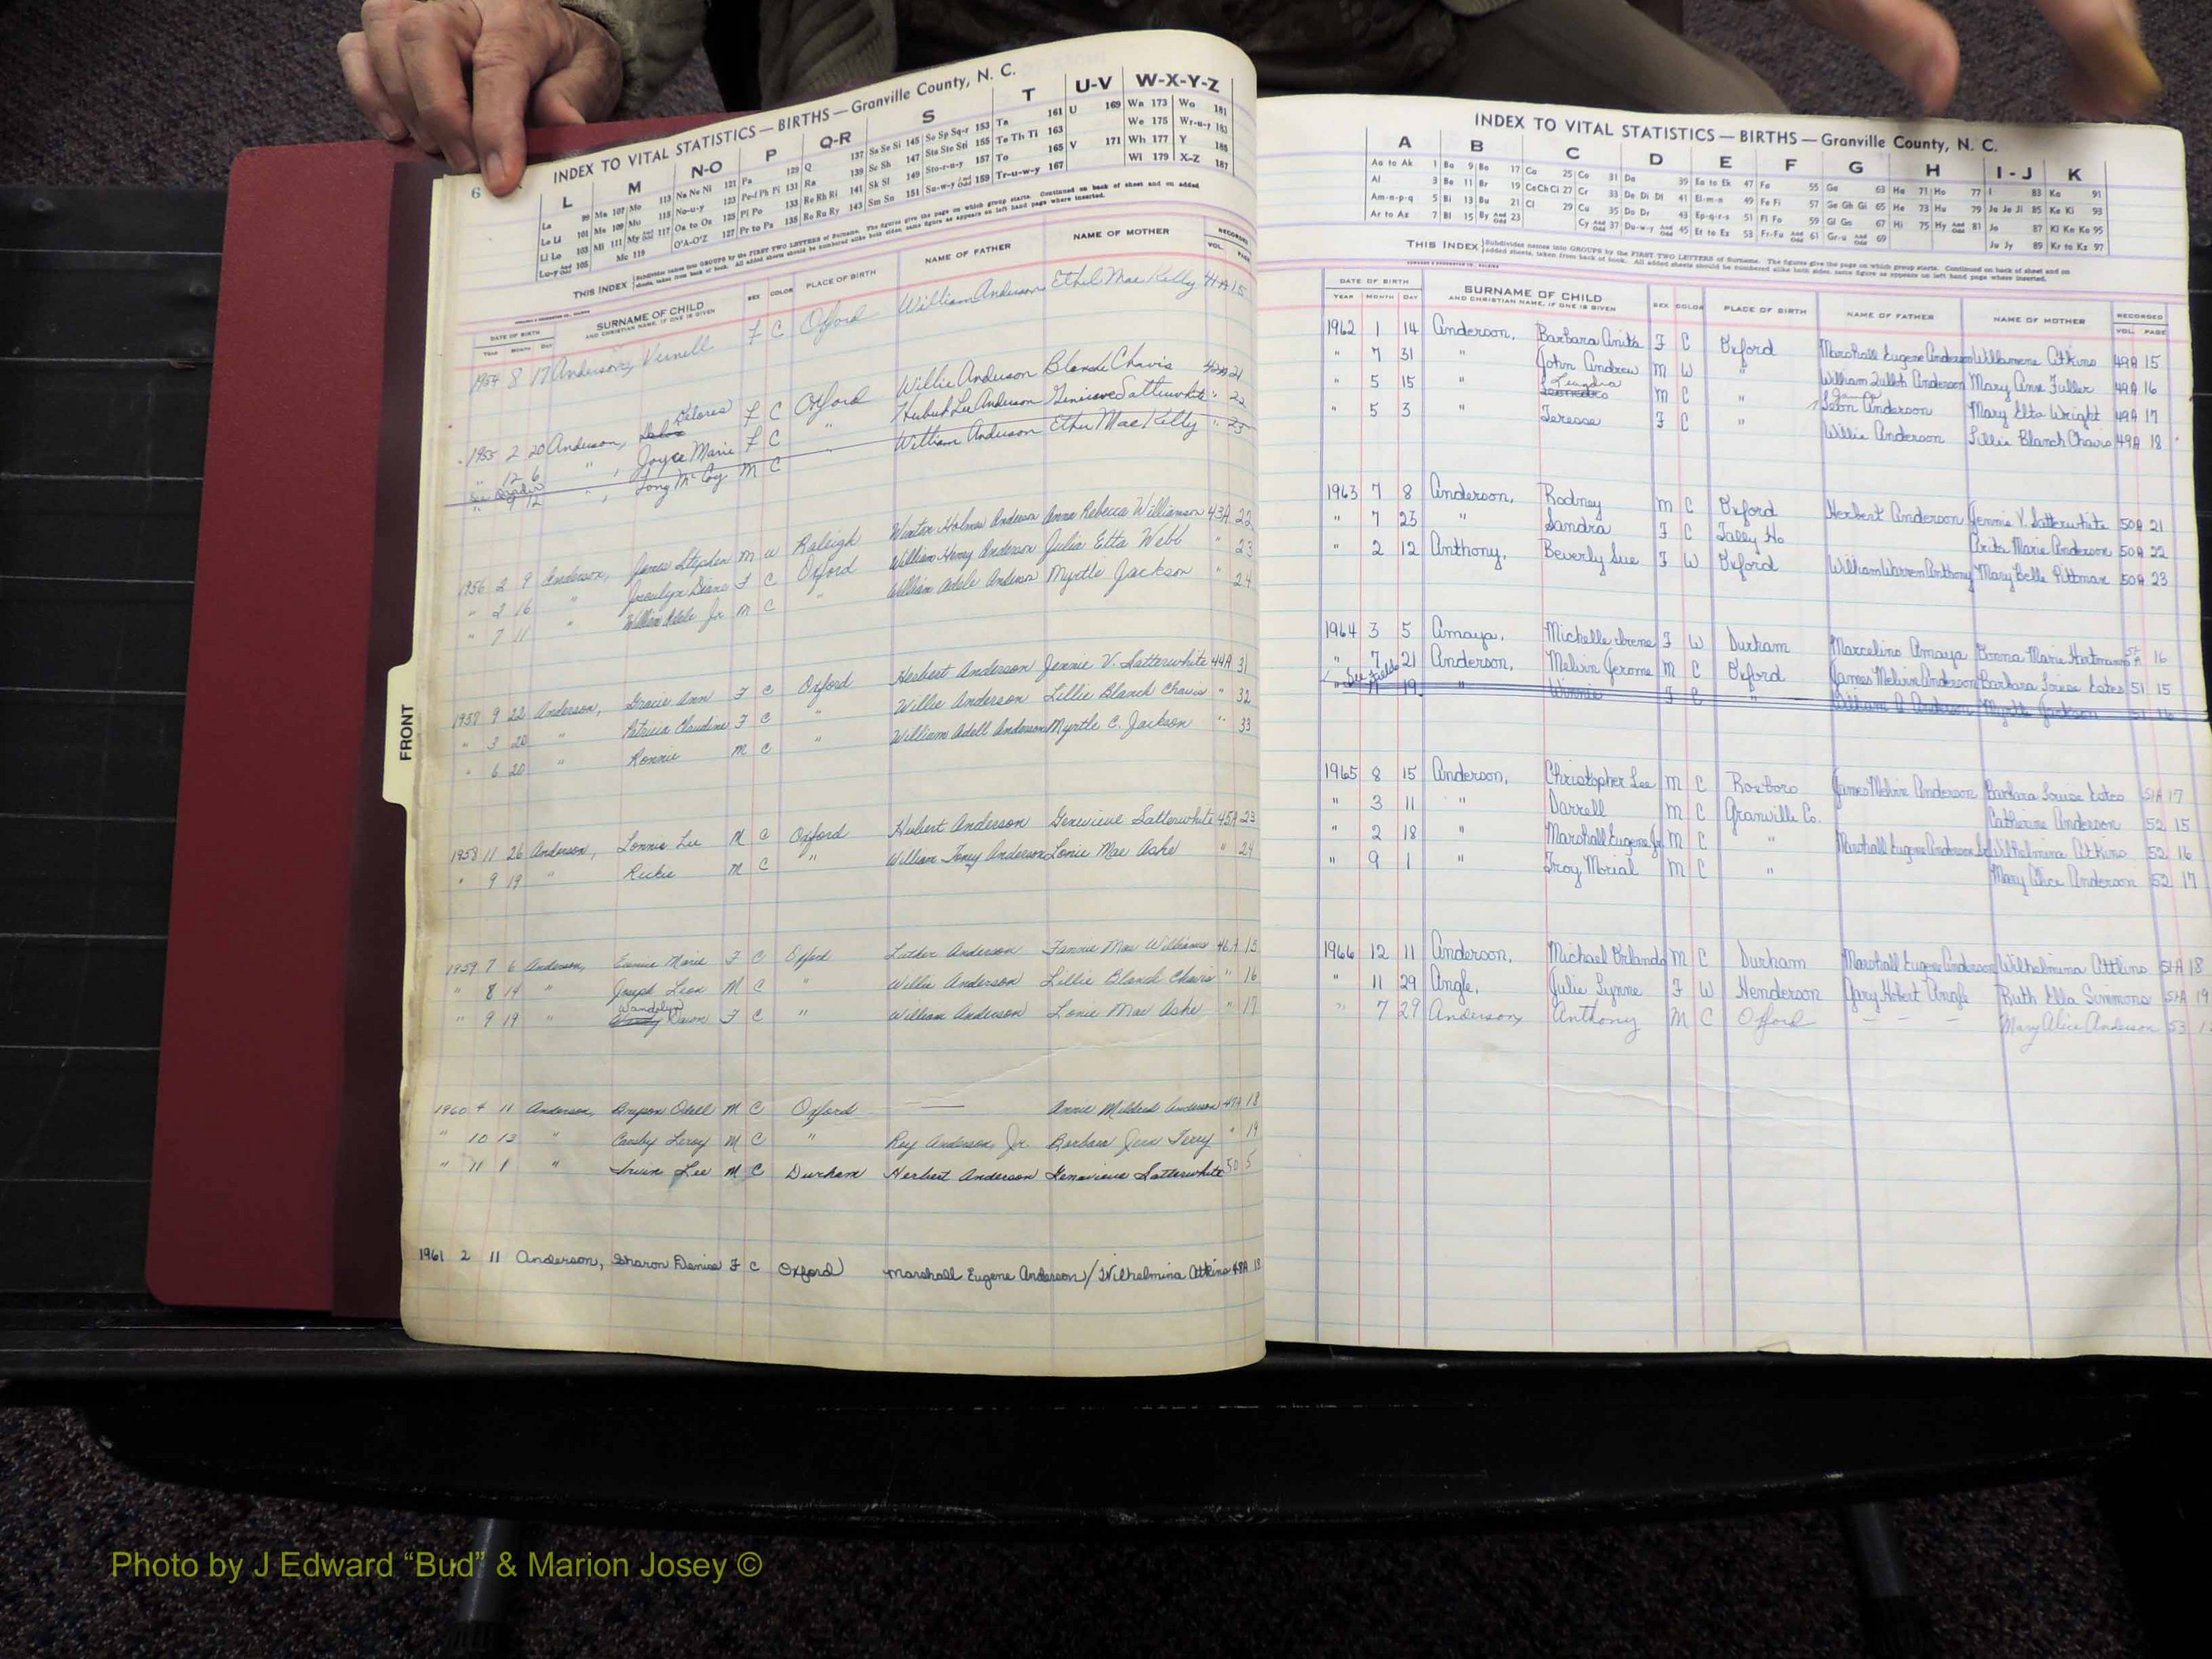 6
INDEX TO VITAL STATISTICS — BIRTHS — Granville County, N. C.
L M N-O P Q-R S T U-V W-X-Y-Z
La 99 Ma 107 Mo 113 Na Ne Ni 121 Pa 129 Q 137 Sa Se Si 145 So Sp Sq-r 153 Ta 161 U 169 Wa 173 Wo 181
Le Li 101 Me 109 Mu 115 No-u-y 123 Pe-f Ph Pi 131 Ra 139 Sc Sh 147 Sta Ste Sti 155 Te Th Ti 163 We 175 Wr-u-y 183
Ll Lo 103 Mi 111 My And Odd 117 Oa to Os 125 Pl Po 133 Re Rh Ri 141 Sk Sl 149 Sto-r-u-y 157 To 165 V 171 Wh 177 Y 185
Lu-y And Odd 105 Mc 119 O'A-O'Z 127 Pr to Pz 135 Ro Ru Ry 143 Sm Sn 151 Su-w-y And Odd 159 Tr-u-w-y 167 Wi 179 X-Z 187
THIS INDEX Subdivides names into GROUPS by the FIRST TWO LETTERS of Surname. The figures give the page on which group starts. Continued on back of sheet and on added
sheets, taken from back of book. All added sheets should be numbered alike both sides, same figure as appears on left hand page where inserted.
DATE OF BIRTH SURNAME OF CHILD SEX COLOR PLACE OF BIRTH NAME OF FATHER NAME OF MOTHER RECORDED
YEAR MONTH DAY AND CHRISTIAN NAME, IF ONE IS GIVEN VOL. PAGE
1954 8 17 Anderson, Vernell F C Oxford William Anderson Ethel Mae Kelly 41A 15
Delores
1955 2 20 Anderson, F C Oxford Willie Anderson Blanche Chavis 42A 21
" 12 6 " , Joyce Marie F C " Herbert Lee Anderson Genieave Satterwhite " 22
" 9 12 " , Long McCoy M C William Anderson Ethel Mae Kelly " 23
1956 2 9 Anderson, James Stephen M W Raleigh Winton Holmes Anderson Anna Rebecca Williamson 43A 22
" 2 16 " Jocelyn Diane F C Oxford William Henry Anderson Julia Etta Webb " 23
" 7 11 " William Adele Jr M C " William Adele Anderson Myrtle Jackson " 24
1957 9 22 Anderson, Gracie Ann F C Oxford Herbert Anderson Jennie V. Satterwhite 44A 31
" 3 20 " Patricia Claudine F C " Willie Anderson Lillie Blanch Chavis " 32
" 6 20 " Ronnie M C " William Adell Anderson Myrtle C. Jackson " 33
1958 11 26 Anderson, Lonnie Lee M C Oxford Hubert Anderson Genevieve Satterwhite 45A 23
" 9 19 " Rickie M C " William Toney Anderson Lonie Mae Ashe " 24
1959 7 6 Anderson, Eunice Marie F C Oxford Luther Anderson Fannie Mae Williams 46A 15
" 8 14 " Joseph Leon M C " Willie Anderson Lillie Blanch Chavis " 16
Wandelyn
" 9 19 " Dawn F C " William Anderson Lonie Mae Ashe " 17
1960 4 11 Anderson, Odell M C Oxford — Annie Mildred Anderson 47A 18
" 10 13 " Leroy M C " Roy Anderson, Jr. Barbara Jean Terry " 19
" 11 1 " Irvin Lee M C Durham Herbert Anderson Genevieve Satterwhite 50 5
1961 2 11 Anderson, Sharon Denise F C Oxford Marshall Eugene Anderson / Wilhelmina Atkins 48A 18
FRONT
INDEX TO VITAL STATISTICS — BIRTHS — Granville County, N. C.
A B C D E F G H I - J K
Aa to Ak 1 Ba 9 Bo 17 Ca 25 Co 31 Da 39 Ea to Ek 47 Fa 55 Ga 63 Ha 71 Ho 77 I 83 Ka 91
Al 3 Be 11 Br 19 Ce Ch Ci 27 Cr 33 De Di Dl 41 El-m-n 49 Fe Fi 57 Ge Gh Gi 65 He 73 Hu 79 Ja Je Ji 85 Ke Ki 93
Am-n-p-q 5 Bi 13 Bu 21 Cl 29 Cu 35 Do Dr 43 Ep-q-r-s 51 Fl Fo 59 Gl Go 67 Hi 75 Hy And Odd 81 Jo 87 Kl Kn Ko 95
Ar to Az 7 Bl 15 By And Odd 23 Cy And Odd 37 Du-w-y And Odd 45 Et to Ez 53 Fr-Fu And Odd 61 Gr-u And Odd 69 Ju Jy 89 Kr to Kz 97
THIS INDEX Subdivides names into GROUPS by the FIRST TWO LETTERS of Surname. The figures give the page on which group starts. Continued on back of sheet and on
added sheets, taken from back of book. All added sheets should be numbered alike both sides, same figure as appears on left hand page where inserted.
DATE OF BIRTH SURNAME OF CHILD SEX COLOR PLACE OF BIRTH NAME OF FATHER NAME OF MOTHER RECORDED
YEAR MONTH DAY AND CHRISTIAN NAME, IF ONE IS GIVEN VOL. PAGE
1962 1 14 Anderson, Barbara Anita F C Oxford Marshall Eugene Anderson Willamena Atkins 49A 15
" 7 31 " John Andrew M W " William Anderson Mary Anne Fuller 49A 16
" 5 15 " Leandra M C " Leon Anderson Mary Etta Wright 49A 17
" 5 3 " Teressa F C " Willie Anderson Lillie Blanch Chavis 49A 18
1963 7 8 Anderson, Rodney M C Oxford Herbert Anderson Jennie V. Satterwhite 50A 21
" 7 23 " Sandra F C Tally Ho Anita Marie Anderson 50A 22
" 2 12 Anthony, Beverly Sue F W Oxford William Warren Anthony Mary Belle Pittman 50A 23
1964 3 5 Amaya, Michelle Irene F W Durham Marcelino Amaya Donna Marie Hartmann 51A 16
" 7 21 Anderson, Melvin Jerome M C Oxford James Melvin Anderson Barbara Louise Estes 51 15
See Fields
" 19 " Winnie F C " William A Anderson Myrtle Jackson 51 16
1965 8 15 Anderson, Christopher Lee M C Roxboro James Melvin Anderson Barbara Louise Estes 51A 17
" 3 11 " Darrell M C Granville Co. Catherine Anderson 52 15
" 2 18 " Marshall Eugene Jr M C " Marshall Eugene Anderson Sr Wilhelmina Atkins 52 16
" 9 1 " Troy Morial M C " Mary Alice Anderson 52 17
1966 12 11 Anderson, Michael Orlando M C Durham Marshall Eugene Anderson Wilhelmina Atkins 51A 18
" 11 29 Angle, Julie Lynne F W Henderson Gary Hobert Angle Ruth Ella Simmons 51A 19
" 7 29 Anderson, Anthony M C Oxford — — — Mary Alice Anderson 53
Photo by J Edward “Bud” & Marion Josey ©